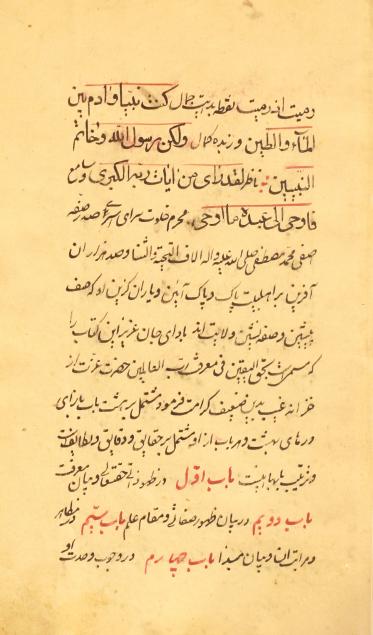 رمیت اذ رمیت نقطه بدایت جمال کنت نبیا و ادم بین
الماء و الطین و زبده کمال ولکن رسول الله و خاتم
النبیین ناظر لقد رای من ایات ربه الکبری و سامع
فاوحی الی عبده ما اوحی محرم خلوت سرای صدر صفه
صفی محمد مصطفی صلی الله علیه و اله الاف التحیة و الثنا و صد هزاران
آفرین بر اهلبیت پاک و پاک آیین و یاران گزین او که صف
پیشین و صفه نشین ولایت اند بادای جان عزیز این کتاب را
که مسمی است بحق الیقین فی معرفت رب العالمین حضرت عزت از
خزانه غیب بدین ضعیف کرامت فرمود مشتمل بر هشت باب بازای
درهای بهشت و هر باب از او مشتمل بر حقایق و دقایق و لطایف است
و ترتیب بابها اینست باب اول در ظهور ذاتی حق تعالی و بیان معرفت
باب دویم در بیان ظهور صفاتی و مقام علم باب سیم در مظاهر
و مراتب آن و بیان مبدا باب چهارم در وجوب وحدت او